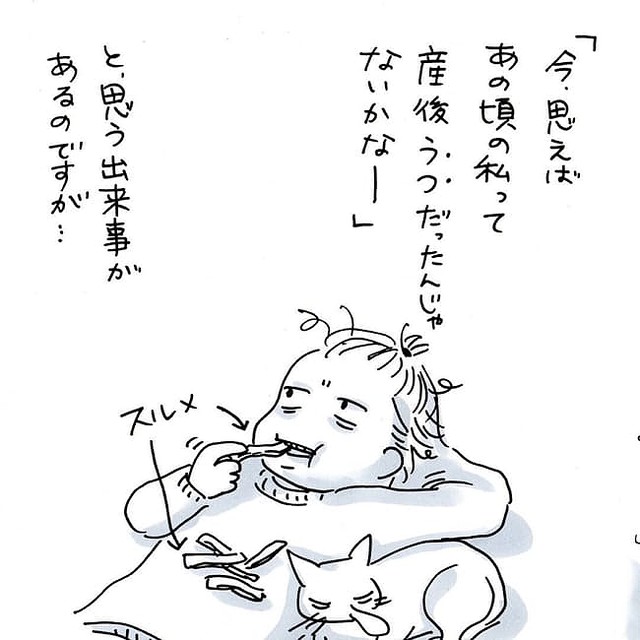 「今、思えば
あの頃の私って
産後うつだったんじゃ
ないかなー」
と、思う出来事が
あるのですが…
スルメ